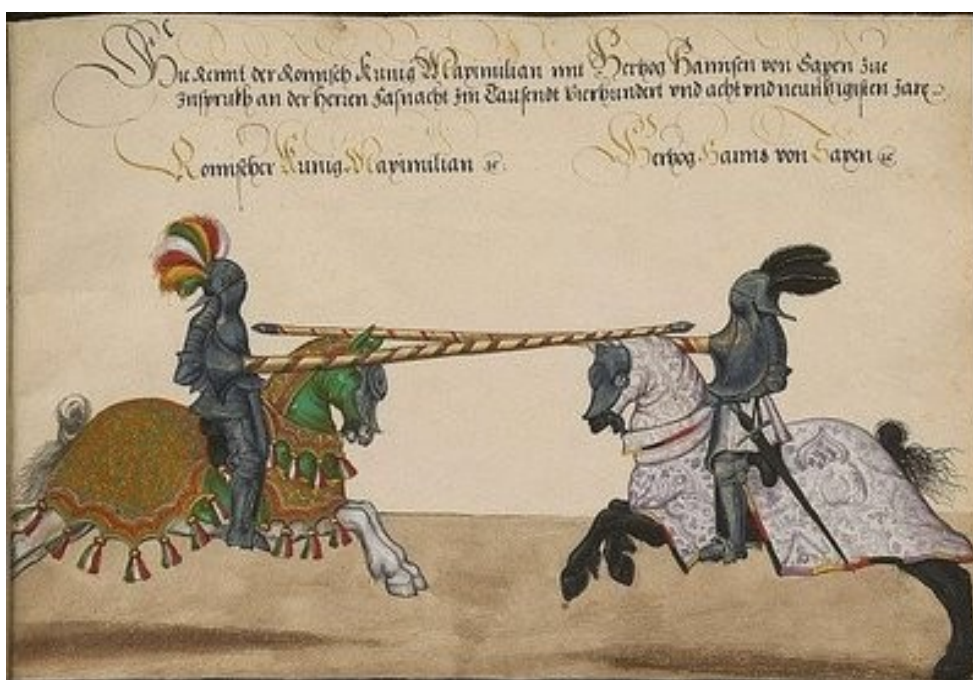 Hie Rennt der Romisch Kunig Maximilian mit Hertzog Hannsen von Saxen zue
Insprukh an der Herren Fasnacht Im Tausendt Vierhundert vnd acht vnd neunzigisten Jare
Romischer Kunig Maximilian &c.
Hertzog Hanns von Saxen &c